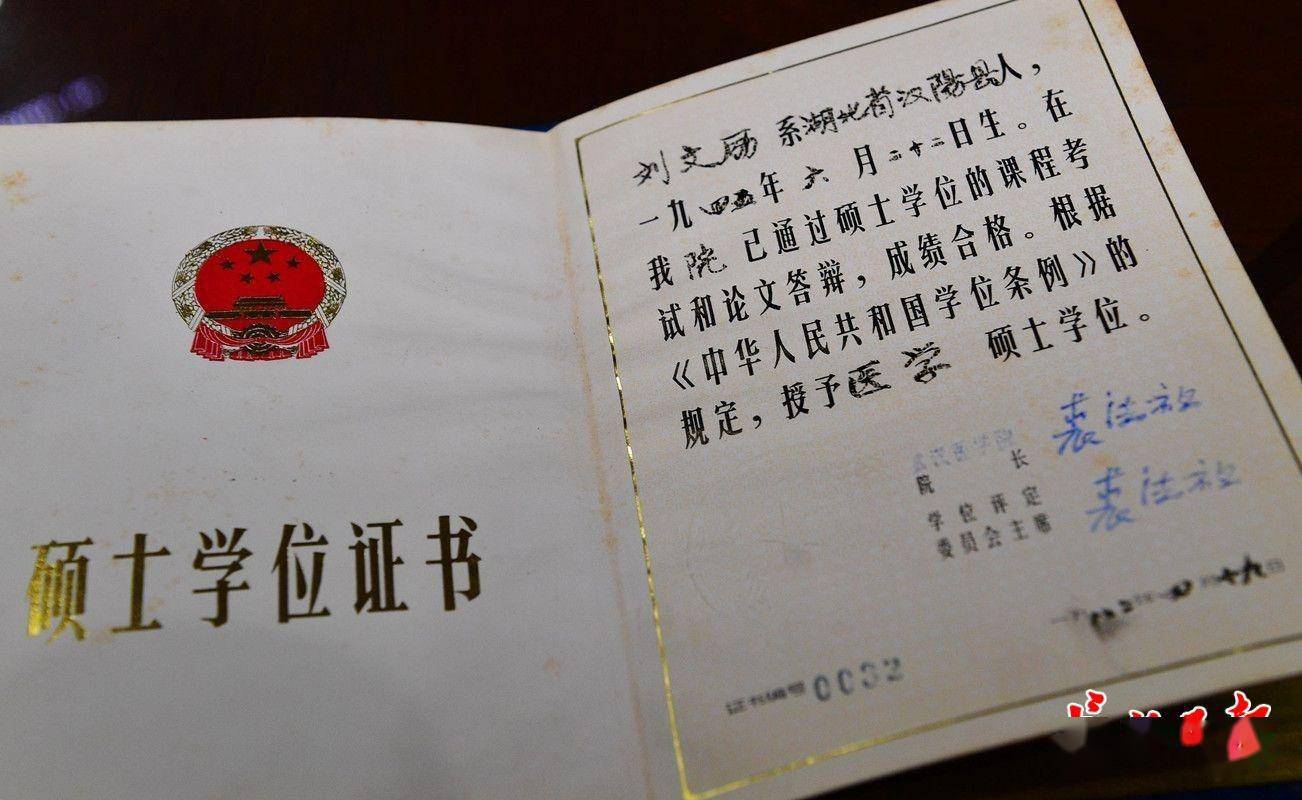 硕士学位证书
刘文励 系湖北省汉陽县人，
一九四五年 六 月二十二日生。在
我 院 已通过硕士学位的课程考
试和论文答辩，成绩合格。根据
《中华人民共和国学位条例》的
规定，授予医学 硕士学位。
武汉医学院
院长 裘法祖
学位评定
委员会主席 裘法祖
十九日
证书编号 0032